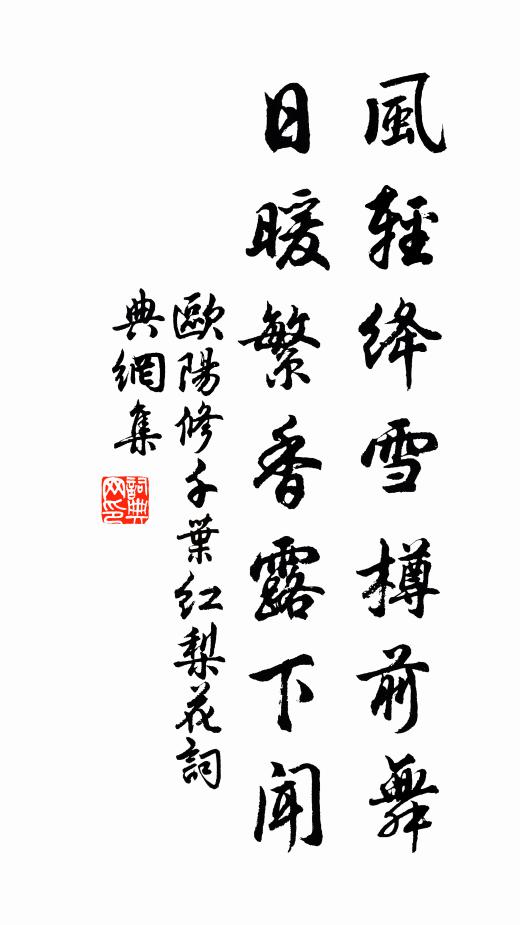 風輕絳雪樽前舞
日暖繁香露下聞
歐陽修千葉紅梨花詞
典網集
詞典
网印